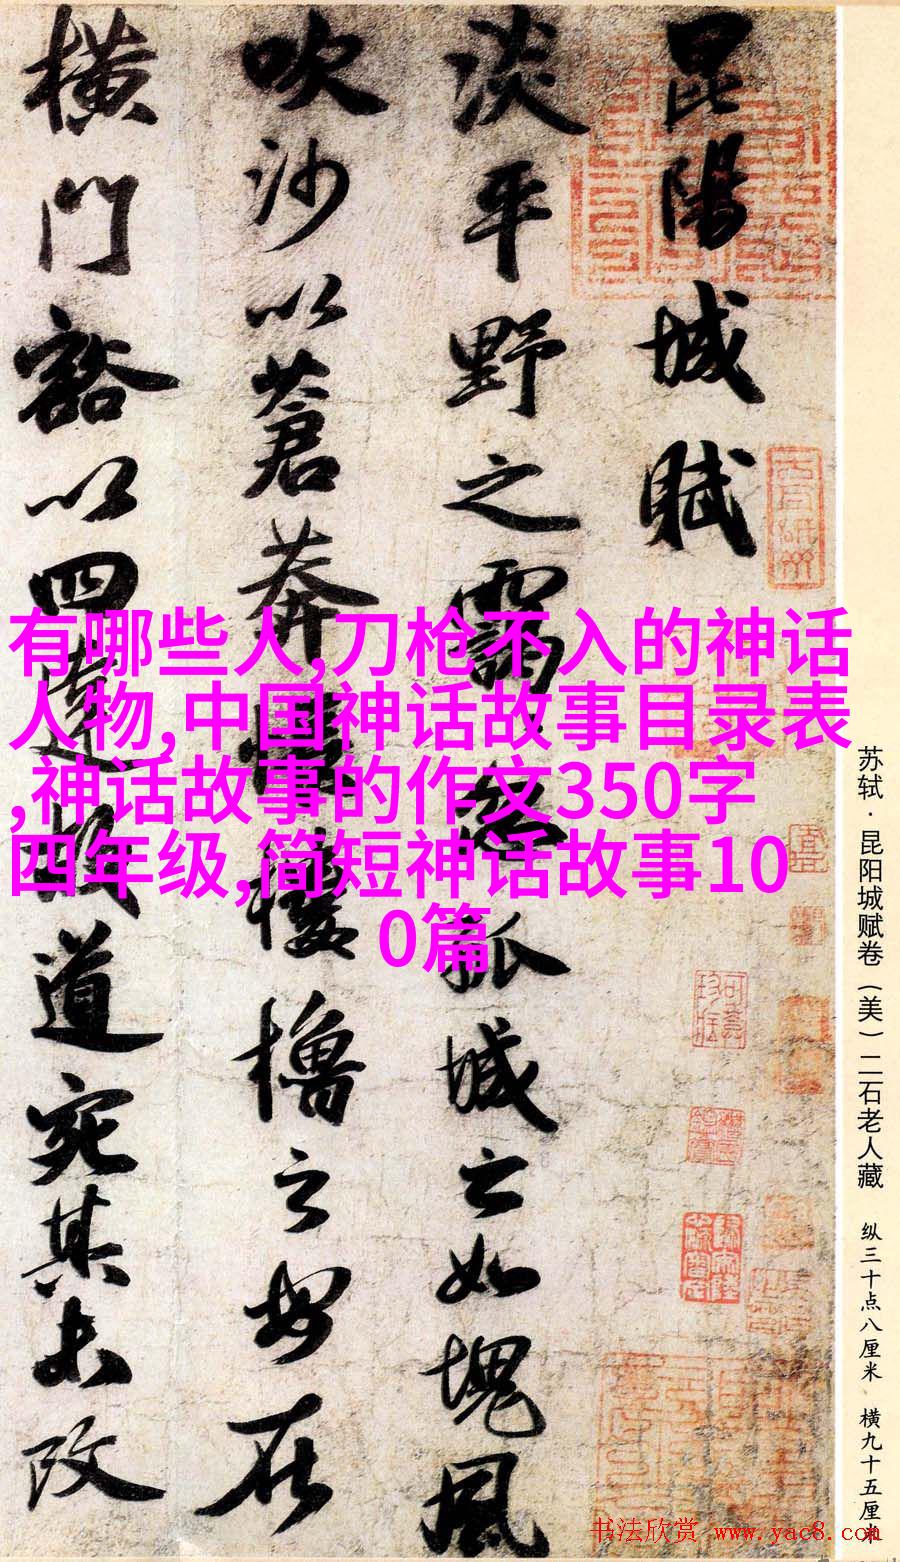 昆陽城賦
淡平野之靄〻忽孤城之如塊風
吹沙以蒼莽悵樓櫓之安在
橫門豁以四達故道宛其未改
有哪些人,刀枪不入的神话
人物,中国神话故事目录表
,神话故事的作文350字
四年级,简短神话故事10
0篇
苏轼·昆阳城赋卷（美）二石老人藏 纵三十点八厘米 横九十五厘米
书法欣赏 www.yac8.com